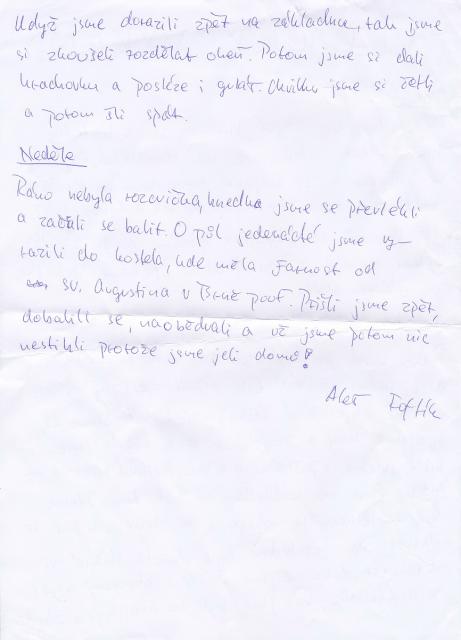 Když jsme dorazili zpět na základnu, tak jsme
si zkoušeli rozdělat oheň. Potom jsme si dali
hrachovku a posléze i guláš. Chvilku jsme si četli
a potom šli spát.
Neděle
Ráno nebyla rozcvička, hnedka jsme se převlékli
a začali se balit. O půl jedenácté jsme vy-
razili do kostela, kde měla Farnost od
sv. Augustina v Brně pouť. Přišli jsme zpět,
dobalili se, naobědvali a už jsme potom nic
nestihli protože jsme jeli domů!
Aleš